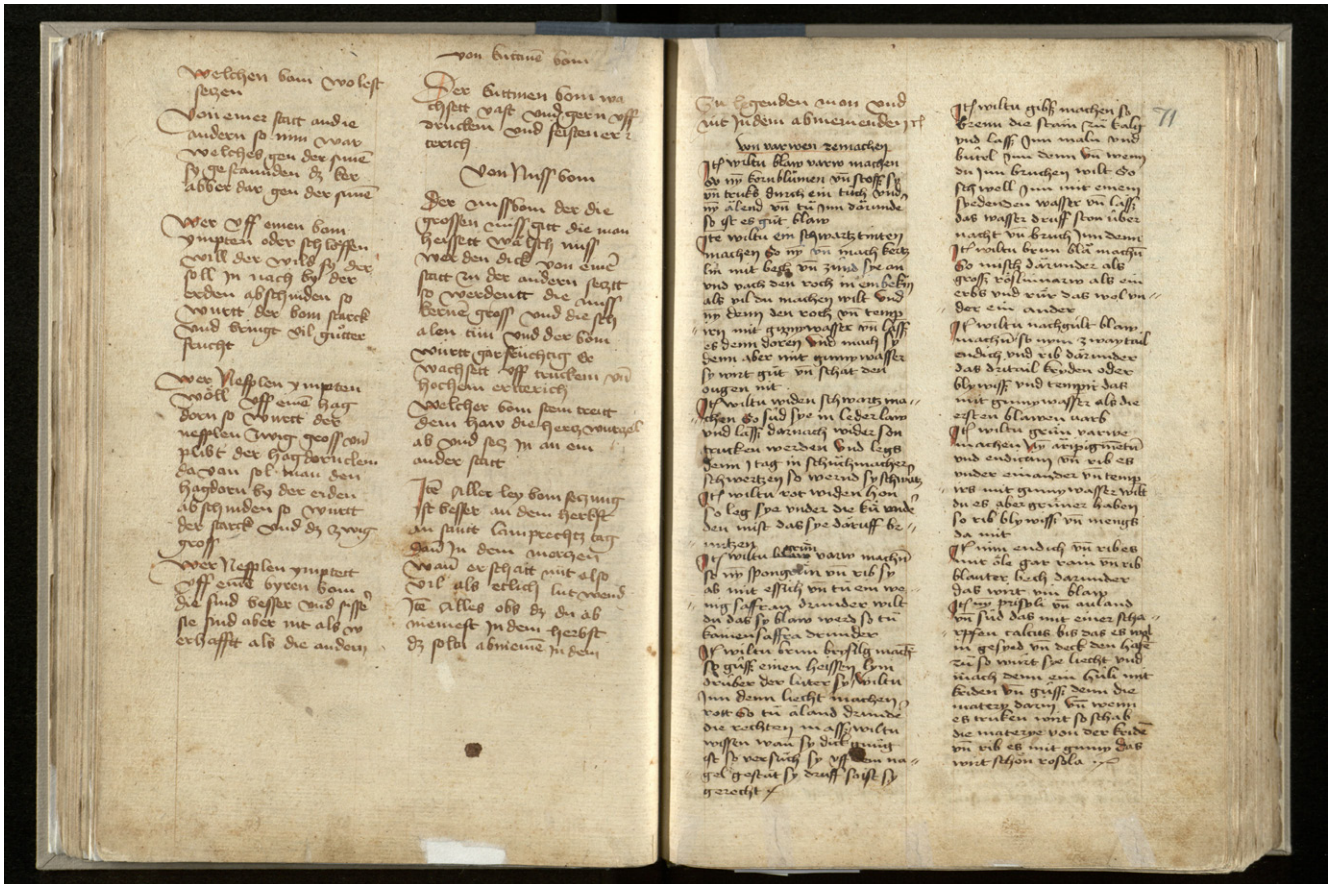 welchen bom wolest
setzen
Von einer statt an die
andern so nim war
welches gen der sunē
sy gestannden dz ker
abber dar gen der sunē
Wer vff einen bom
ympten oder schlossen
will der wild sy der
soll in nach by der
erden abschniden so
wurtt der bom starck
vnd bringt vil gůtter
frucht
Wer Nesplen ympten
wöll vff einē hag
dorn so wurtt der
nesplen zwig gross vn̄
plibt der hagdorn clein
da von sol man den
hagdorn by der erden
abschniden so wurtt
der starck vnd dz zwig
gross
Wer Nesplen ymptett
vff einē byren bom
die sind besser vnd süsse
sie sind aber nit als w
erhafftt als die andern
von kuttinē bom
Der kuttinen bom wa
chsett vast vnd gern vff
drucken vnd feisten er
terich
Von Nuss bom
Der nussbom der die
grossen nuss gitt die man
heissett wälsch nuss
werden dick von einer
statt zu der andern setztt
so werdentt die nuss
kernē gross vnd die sch
alen tün vnd der bom
württ gar früchtig Er
wachsett vff truckem vn̄
hochem erttterich
Welcher bom stein treitt
dem haw die hertz wurtzel
ab vnd setz in an ein
ander statt
Itē Aller ley bom setzung
ist besser an dem herbst
an sant lamprechtz tag
dan̄ In dem mertzen
wan̄ er schatt nit also
vil als etlich lut wend
Itē Alles obs dz du ab
niemest In dem herbst
dz soltu abniemē In dem
zu hgenden mon vnd
nit In dem abniemenden
von varwen ze machen
Itē wiltu blaw varw machen
so nȳ kornblůmen vn̄ stoss sy
vn̄ truks durch ein tůch vnd
nȳ äland vn̄ tů Inn dar vnde
so ist es gůt blaw
Itē wiltu ein schwartz tinten
machen So nȳ vn̄ mach kertz
lin mit bech vn̄ zünd sye an
vnd vach den roch in ein bekin
als vil du machen wilt vnd
nȳ denn den roch vn̄ temp
irn mit gumywasser vn̄ lass
es denn doren vnd mach sy
denn aber mit gumy wasser
sy wirt gůt vn̄ schat den
ougen nit
Itē wiltu widen schwartz ma
chen So süd sye in lederlaw
vnd lass darnach wider son
trucken werden vnd legs
denn 1 tag in schůchmachers
schwertzen so wernd sy schwartz
Itē wiltu rot widen hon
so leg sye vnder die ků vnde
den mist das sye daruff be
nitzen
Itē wiltu grün varw machn̄
so nȳ spongrün vn̄ rib sy
ab mit essich vn̄ tů ein we
nig saffran drunder wilt
du das sy blaw werd so tů
drunder
Itē wiltu brun
so güss einen heissen lym
drüber der luter sy wiltu
Inn denn liecht machen
rott So tů aland drunde
die rechten mass wiltu
wissen wan̄ sy dick gnůg
ist so versůch sy vff dem na
gel gestat sy druff so ist sy
gerecht
71
Itē wiltu gibs machen so
brenn die stain zů kalg
vnd lass Inn maln vnd
bütel Inn denn vn̄ wenn
du Inn bruchen wilt So
schwell Inn mit einem
syedenden wasser vn̄ lass
das wasser druff ston über
nacht vn̄ bruch Inn denn
Itē wiltu brun bla machn̄
So misch darunder als
gross röslinvarw als ein
erbs vnd rür das wol vn
der ein ander
Itē wiltu nachgült blaw
machn̄ so nym zway tail
endich vnd rib darunder
das drittail kryden oder
blywiss vnd temprir das
mit gumywasser als die
ersten blawen varb
Itē wiltu grün varwe
machen Nȳ äripigmētū
vnd endicam vn̄ rib es
vnder einander vn̄ temp
irs mit gumy wasser wilt
du es aber grüner haben
so rib blywiss vn̄ mengs
da mit
Itē nim endich vn̄ rib es
mit öle gar rain vn̄ rib
darunder
das wirt ein blaw
Itē nȳ prisolī vn̄ äland
vn̄ süd das mit einer scha
rpfen calcus bis das es wol
in gesyod vn̄ deck den hafē
zů so wurt sye liecht vnd
mach denn ein hüli mit
kriden vn̄ güss denn die
matery darin vn̄ wenn
es truken wirt so schab
die materye von der kridē
vn̄ rib es mit gumy das
wirt schön rosola